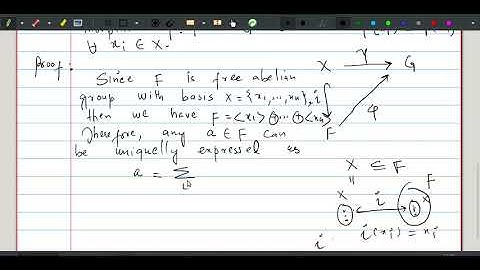 ∀ xi ∈ X.
Proof:
Since F is free abelian
group with basis X = {x1, ..., xn},
then we have F = <x1> ⊕ ... ⊕ <xn>
Therefore, any a ∈ F can
be uniquelly expressed as
a = Σ
X γ G
i
F φ
X ⊆ F
X i F
i(xi) = xi
i